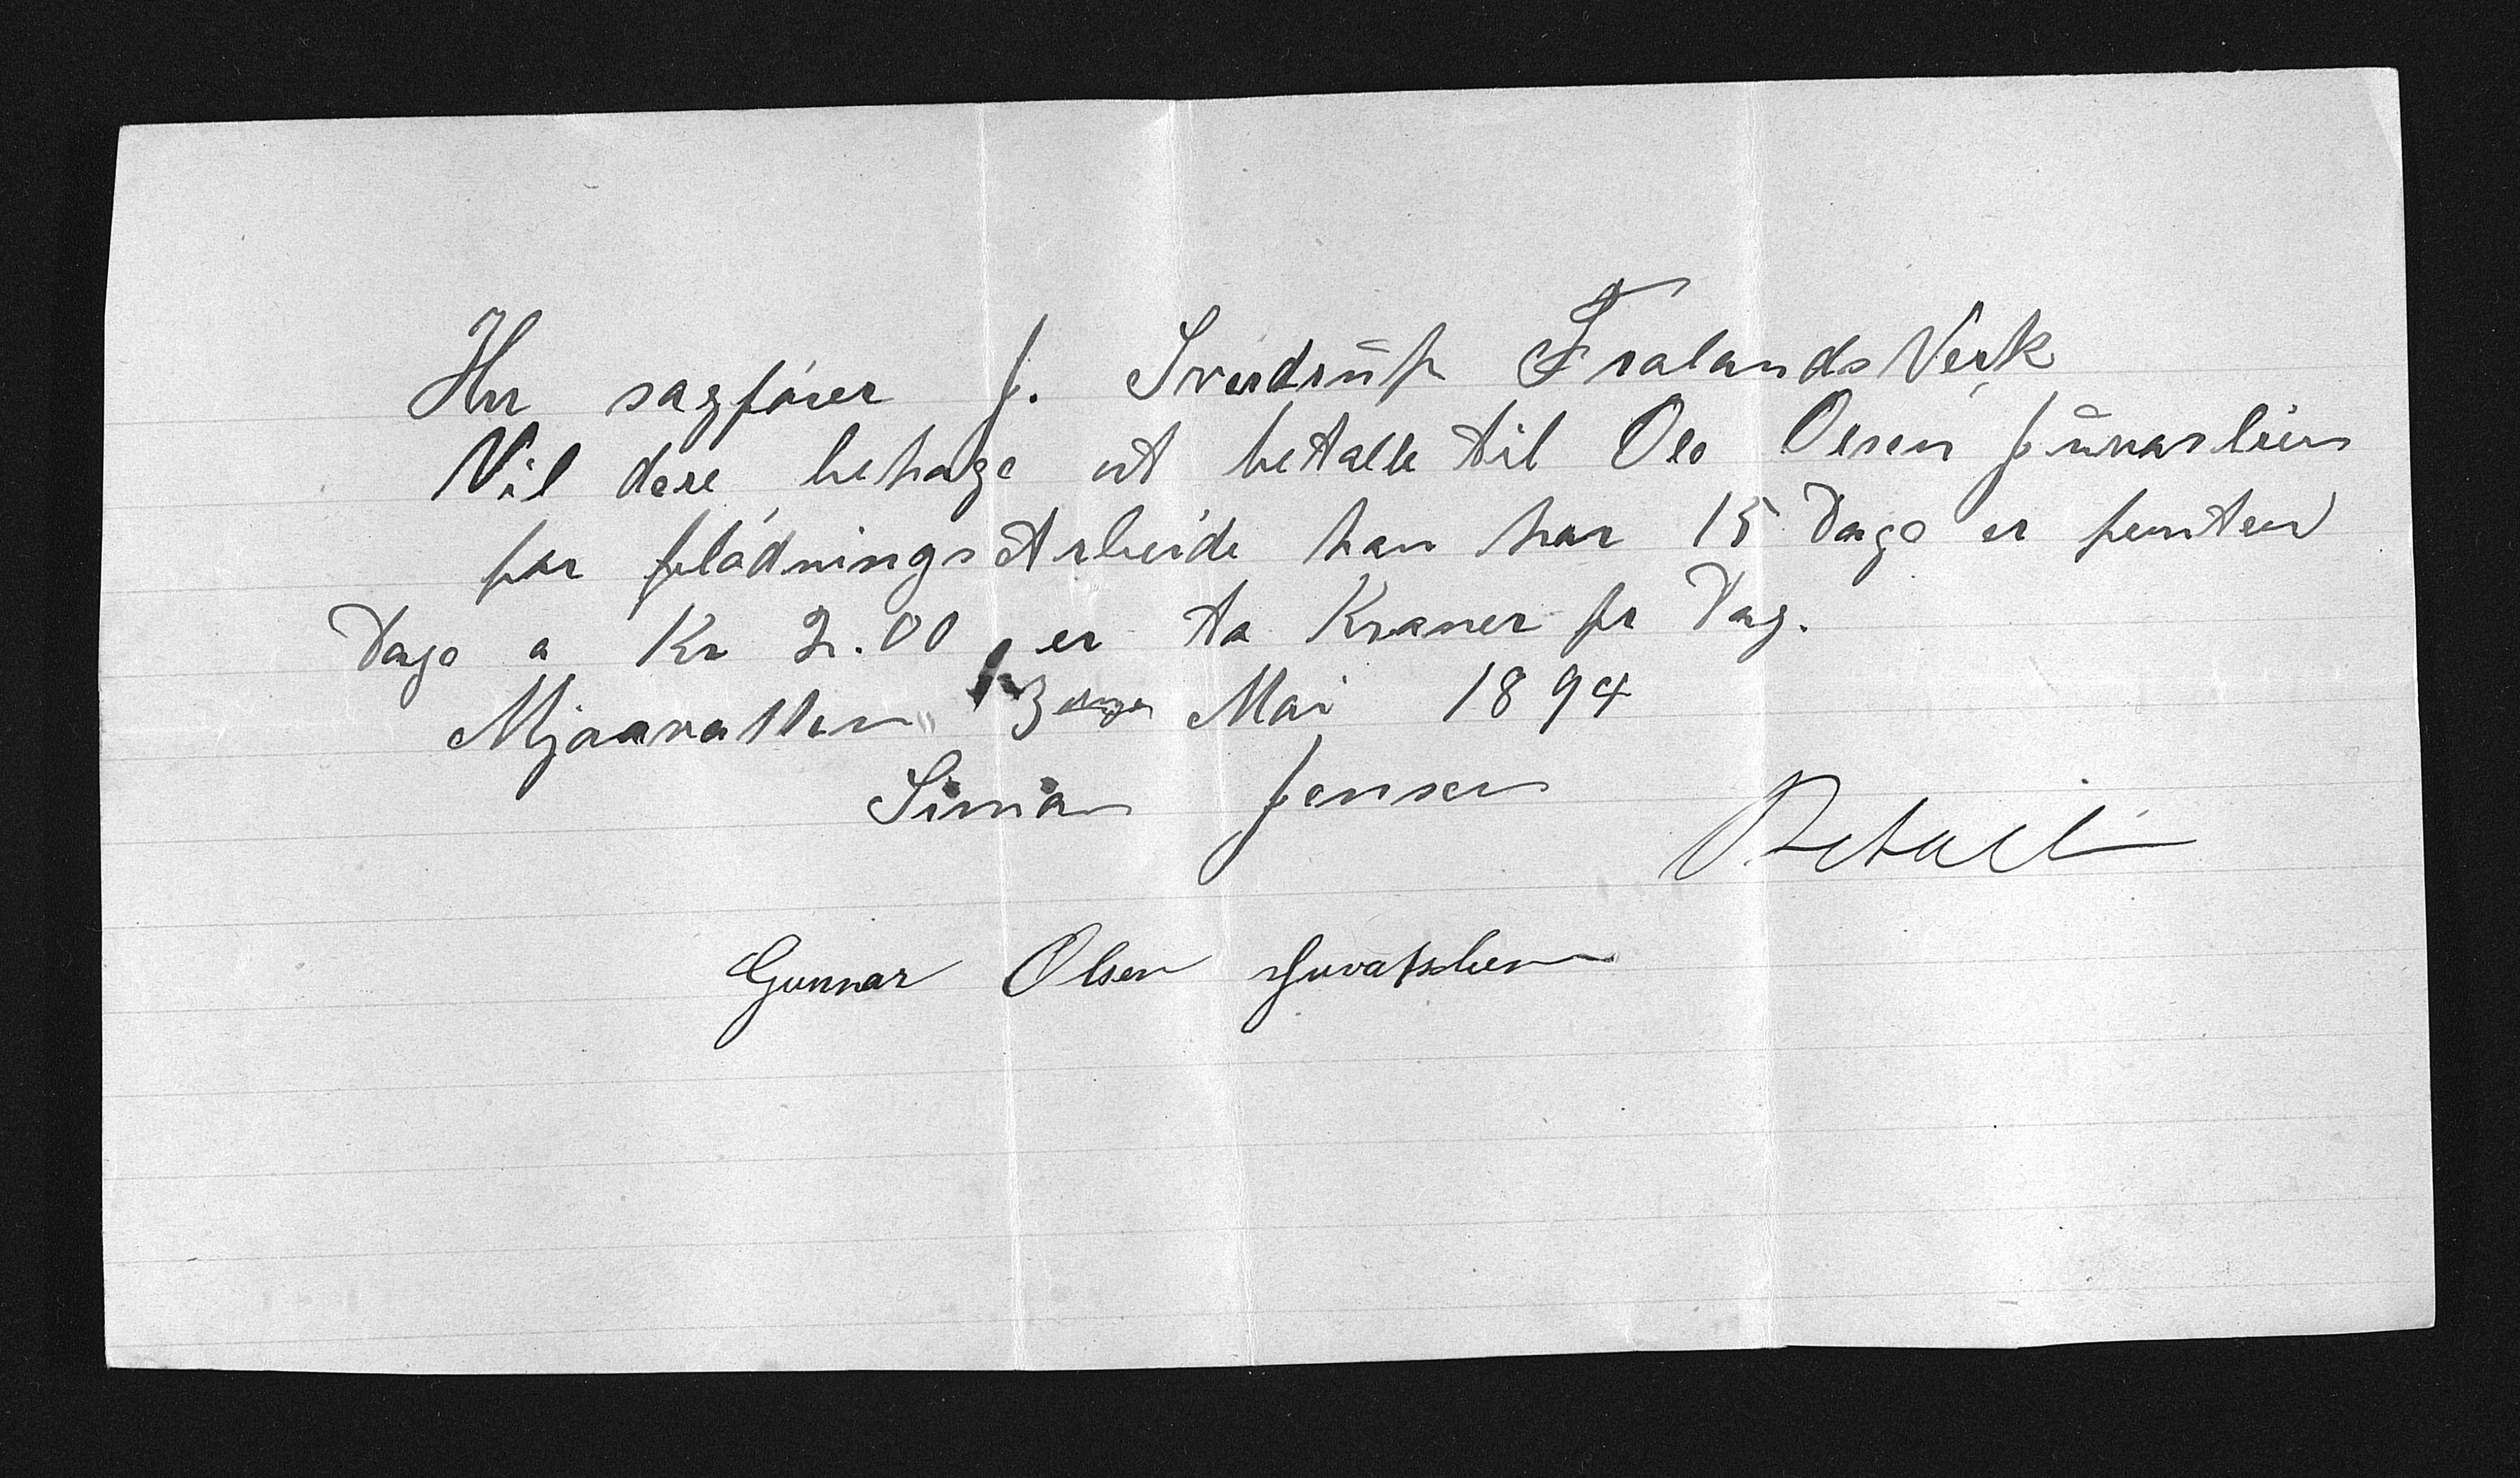 Hrr sagfører J. Sverdrŭp FrolandsVerk
Vil dere behage at betalle til Ole Olsen Jŭvaslien
for flødningsArbeide han har 15 Dage er femten
Dage a Kr 2.00 er to Kroner pr Dag.
Mjaavatten 13 Mai 1894
Simon Jensen
Betalt
Gunnar Olsen Juvatslien